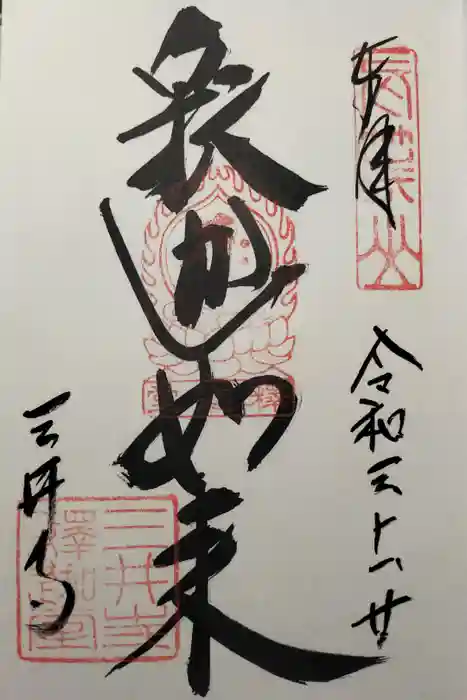 奉拝
長等山
令和三
釈迦如来
釋迦堂
三井寺
三井寺
釋迦堂